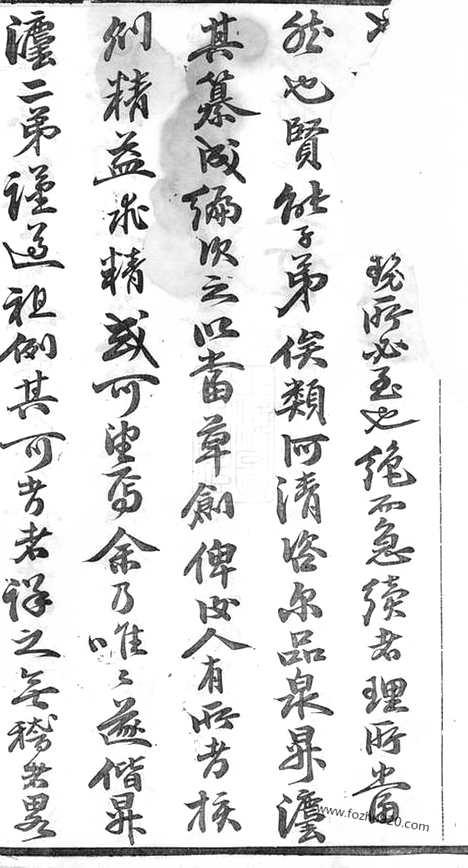 勢所必至也絶而急續者理所當
然也賢能子弟俟類河清咨尔品泉昇澐
其纂成編次之以當草創俾後人有所考核
則精益求精或可望焉余乃唯〻遂偕昇
澐二弟謹遵祖例其可考者詳之無稽者畧